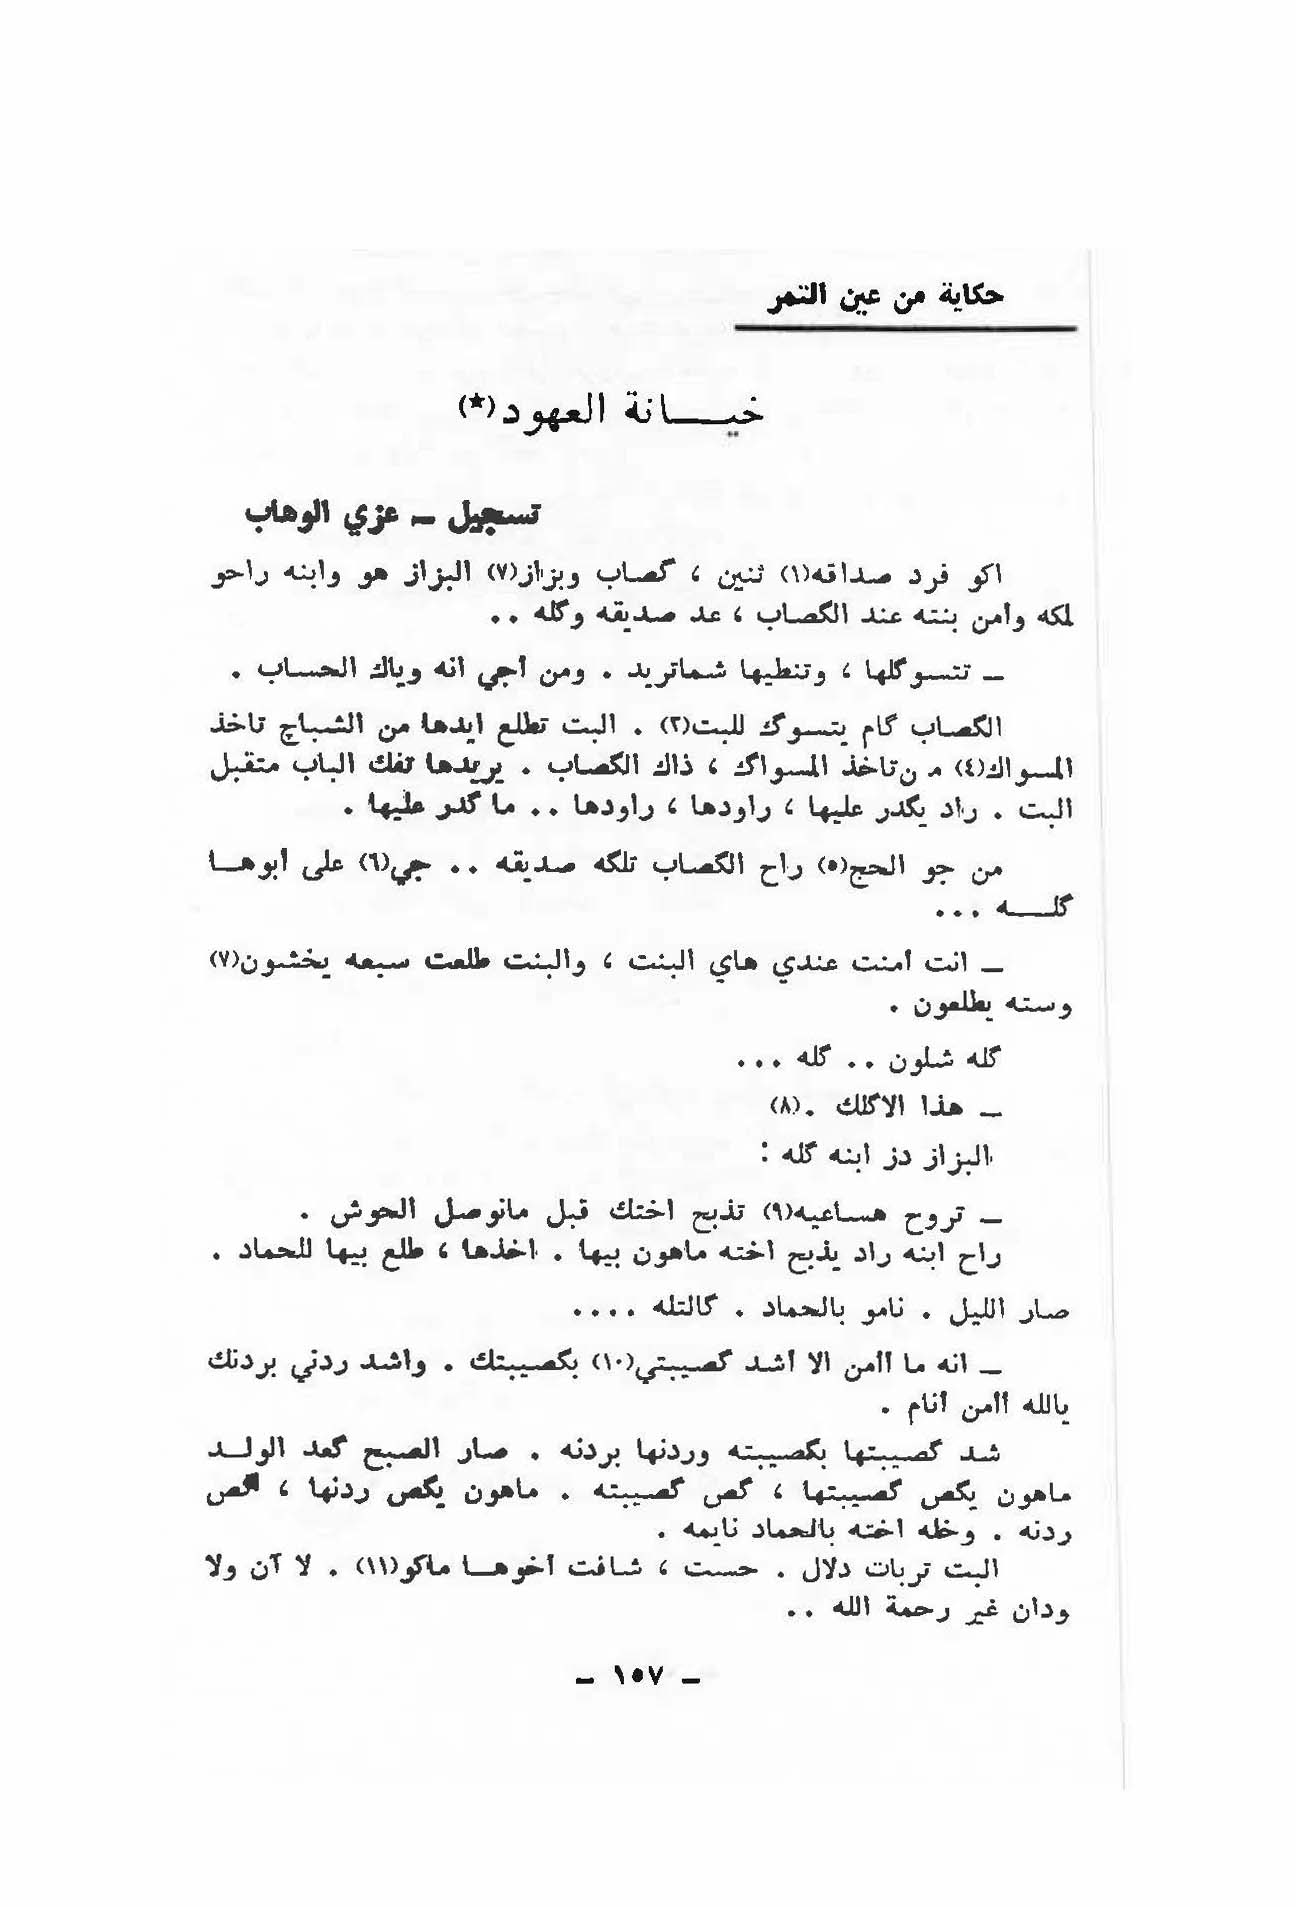 حكاية من عين التمر
خيـــانة العهود(★)
تسجيل ــ عزي الوهاب
اكو فرد صداقه(١) ثنين ، گصاب وبزاز(٧) البزاز هو وابنه راحو
لمكه وأمن بنته عند الگصاب ، عد صديقه وگله ..
ــ تتسوگلها ، وتنطيها شماتريد . ومن أجي انه وياك الحساب .
الگصاب گام يتسوگ للبت(٣) . البت تطلع ايدها من الشباچ تاخذ
المسواك(٤) من تاخذ المسواگ ، ذاك الگصاب . يريدها تفك الباب متقبل
البت . راد يگدر عليها ، راودها ، راودها .. ما گدر عليها .
من جو الحج(٥) راح الگصاب تلگه صديقه .. جي(٦) على أبوهـا
گلـــه ...
ــ انت أمنت عندي هاي البنت ، والبنت طلعت سبعه يخشون(٧)
وسته يطلعون .
گله شلون .. گله ...
ــ هذا الاگلك .(٨)
البزاز دز ابنه گله :
ــ تروح هساعيه(٩) تذبح اختك قبل مانوصل الحوش .
راح ابنه راد يذبح اخته ماهون بيها . اخذها ، طلع بيها للحماد .
صار الليل . نامو بالحماد . گالتله ....
ــ انه ما اأمن الا أشد گصيبتي(١٠) بگصيبتك . واشد ردني بردنك
يالله اأمن أنام .
شد گصيبتها بگصيبته وردنها بردنه . صار الصبح گعد الولـد
ماهون يگص گصيبتها ، گص گصيبته . ماهون يگص ردنها ، گص
ردنه . وخله اخته بالحماد نايمه .
البت تربات دلال . حست ، شافت أخوهـا ماكو(١١) . لا آن ولا
ودان غير رحمة الله ..
ــ ١٥٧ ــ